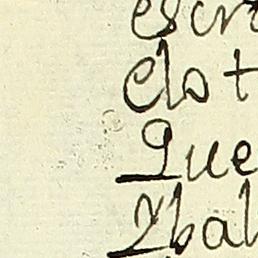 escr
clo t
Que
Ybal